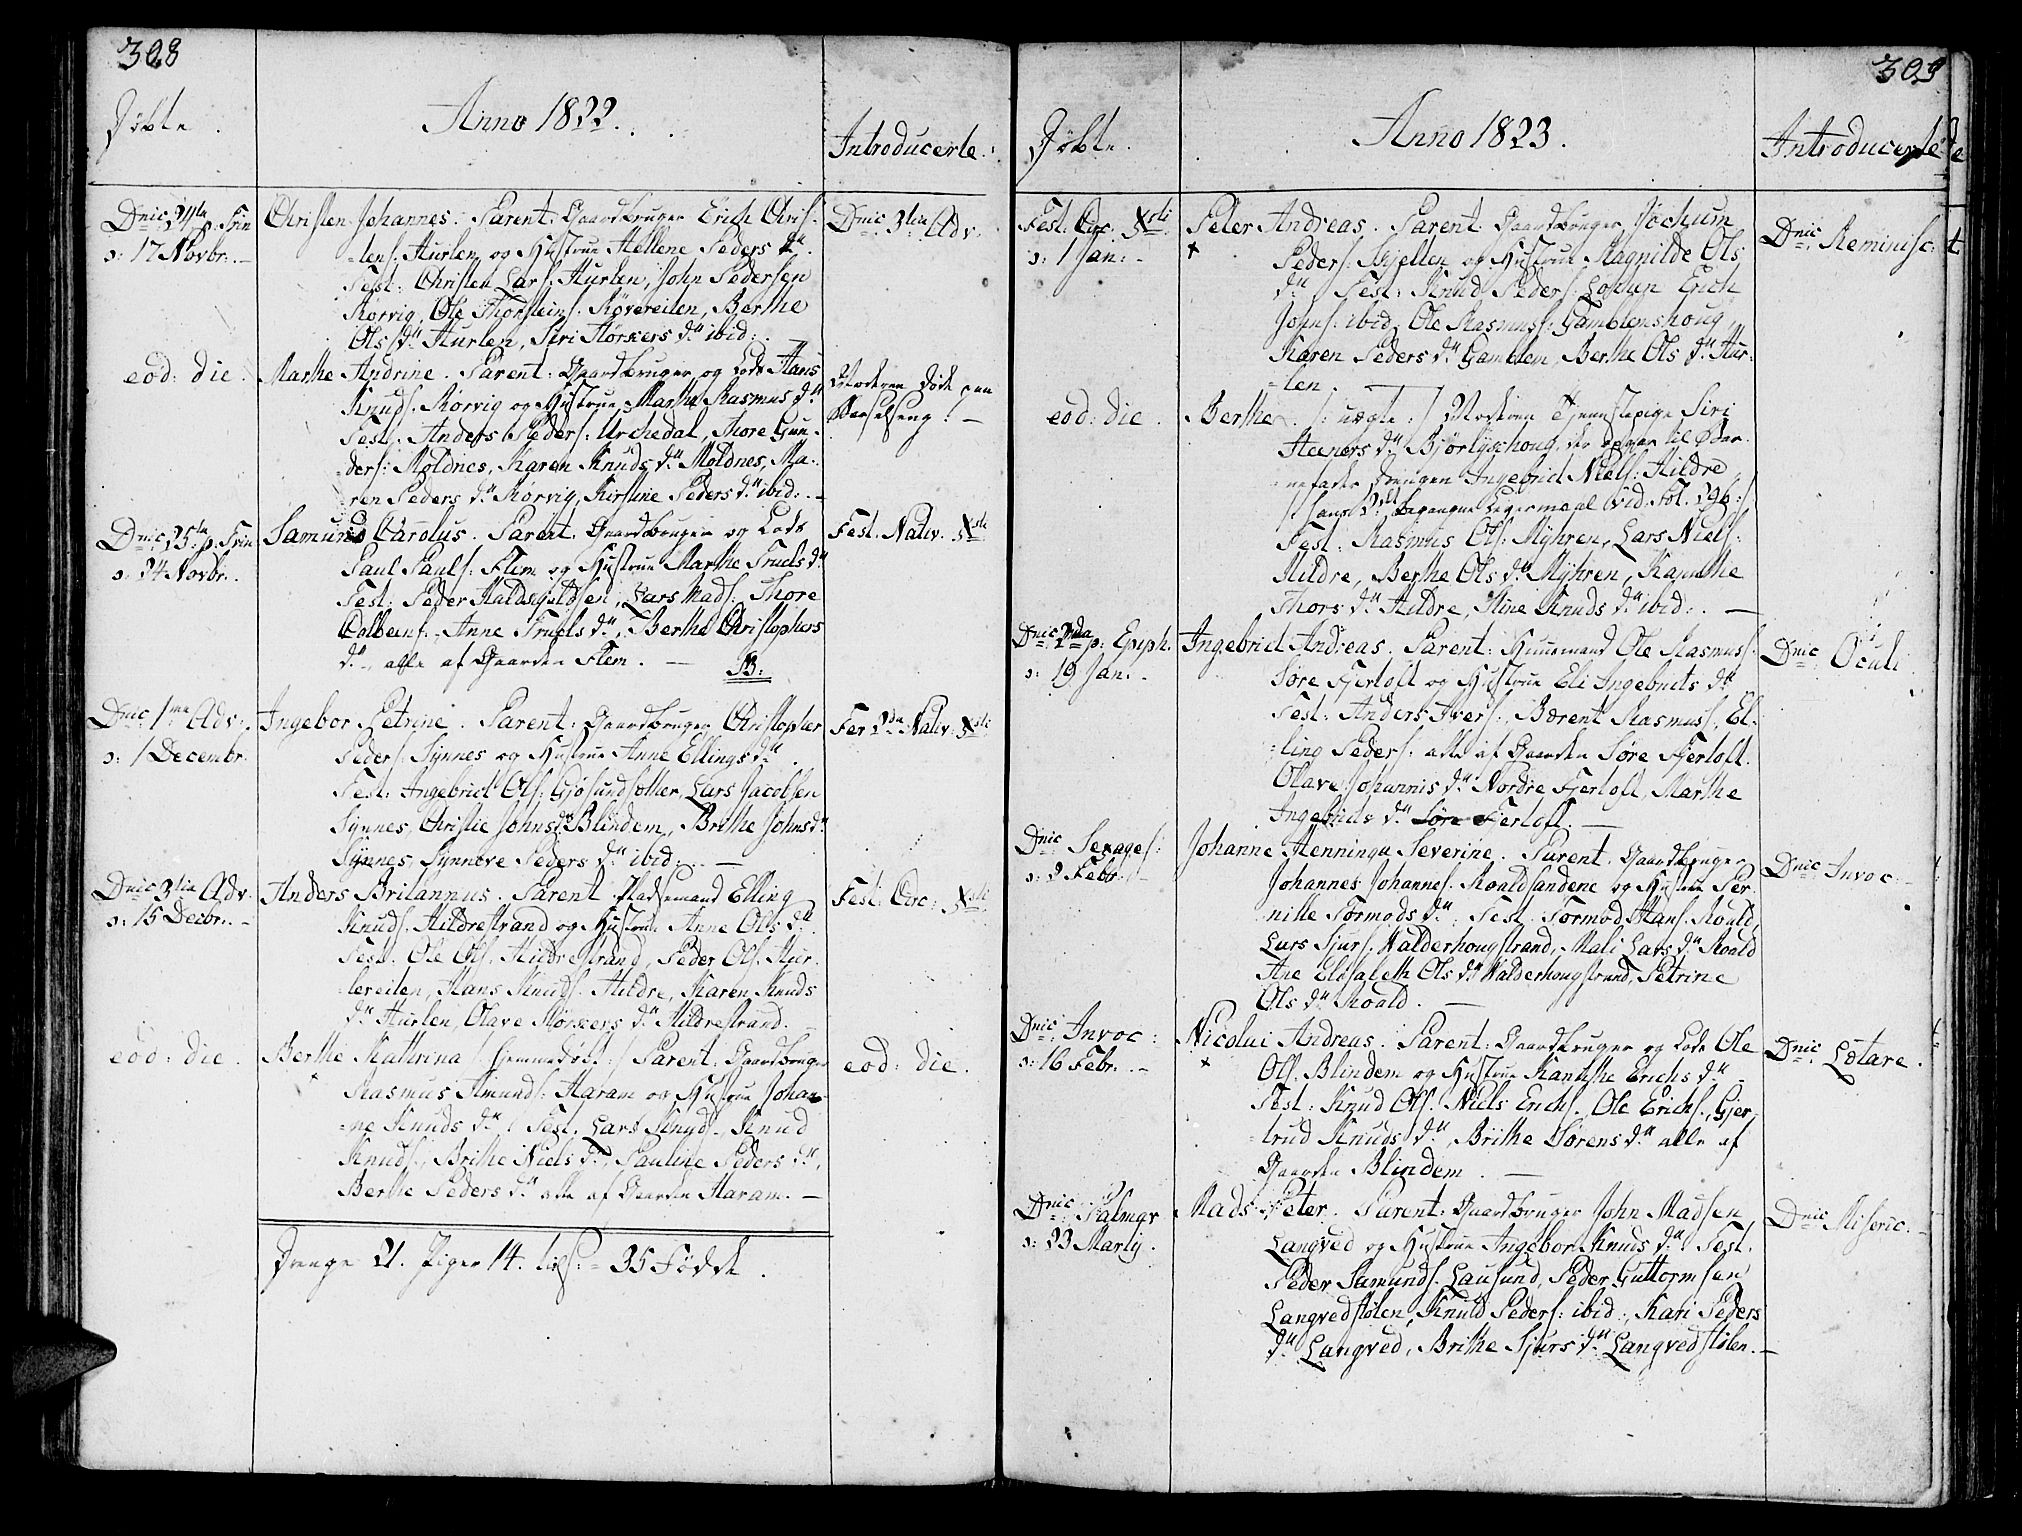 308
Døbte.
Anno 1822.
Introducerte.
Dnic. 24de p. Trin
ɔ: 17 Novbr. —
Christen Johannes. Parent: Gaardbruger Erich Chris-
tens: Hurlen og Hustrue Hellene Peders dtr
Test: Christen Lars: Hurlen, John Pedersen
Rorvig, Ole Thorsteins: Røvereiten, Berthe
Ols dtr Hurlen, Siri Størkers dtr ibid:
Dnic. 3tia Adv.
eod: die.
Marthe Andrine. Parent: Gaardbruger og Lods Hans
Knuds: Rorvig og Hustrue Marthe Rasmus dtr
Test: Anders Peders: Urchedal, Thore Gun-
ders: Moldnes, Karen Knuds dtr Moldnes, Ma-
ren Peders dtr Rorvig, Kirstine Peders dtr ibid: —
Moderen døde paa
Barselseng! —
Dnic. 25de p. Trin
ɔ: 24 Novbr.
Samund Carolus. Parent. Gaardbruger og Lods
Paul Pauls: Flem og Hustrue Marthe Truels dtr
Test: Peder Haldsteldsen, Lars Mads:, Thore
Colbeens:, Anne Truels dtr, Berthe Christophers
dtr alle af Gaarden Flem. —
Fest. Nativ. Xsti
Dnic. 1ma Adv:
ɔ: 1 Decembr.
Ingebor Petrine. Parent: Gaardbruger Christopher
Peders: Synnes og Hustrue Anne Ellings dtr.
Test: Ingebrict Ols: Gjøsundsøther, Lars Jacobsen
Synnes, Christie Johns dtr Blindem, Brithe Johns dtr
Synnes, Synneve Peders dtr ibid: —
Fer 2da Nativ: Xsti
Dnic. 3tia Adv.
ɔ: 15 Decbr. —
Anders Britannus. Parent Pladsemand Elling
Knuds: Hildrestrand og Hustrue Anne Ols dtr.
Test. Ole Ols. Hildrestrand, Peder Ols. Hur-
lereiten, Hans Knuds: Hildre, Karen Knuds
dtr Hurlen, Olave Størkers dtr Hildrestrand. —
Fest. Circ: Xsti
eod: die.
Berthe Kathrina /: hjemmedøbt :/ Parent: Gaardbruger
Rasmus Amunds: Haram og Hustrue Johan-
ne Knuds dtr. Test. Lars Knuds:, Knud
Knuds:, Brithe Niels dtr, Pauline Peders dtr,
Berthe Peders dtr alle af Gaarden Haram. —
eod: die.
Drenge 21. Piger 14. tils: = 35 Fødde.
309
Døbte.
Anno 1823.
Introducerte
Fest. Circ. Xsti
ɔ: 1 Jan: —
Peter Andreas. Parent. Gaardbruger Jochum
Peders: Skjellen og Hustrue Magnilde Ols
dtr. Test: Knud Peders: Løstun Erich
Johns: ibid, Ole Rasmus: Gamblemshoug,
Karen Peders dtr Gamblem, Berthe Ols dtr Hur-
len.
Dnic. Reminisc:
eod: die.
Berthe /: uægte :/ Moderen Tjenestepige Siri
Steners dtr Bjørlyckhoug, der opgav til Barne-
fader Drengen Ingebrict Niels: Hildre
/: hans 2det begangne Leiermaal vid. Fol. 296:/
Test: Rasmus Ols: Myhren, Lars Niels:
Hildre, Berthe Ols dtr Myhren, Kanuthe
Thors dtr Hildre, Stine Knuds dtr ibid: —
Dnic. 2da p: Epiph.
ɔ: 19 Jan: —
Ingebrict Andreas. Parent: Huusmand Ole Rasmus:
Søre Fjertoft og Hustrue Eli Ingebricts dtr
Test: Anders Ivers:, Bærent Rasmus:, El-
ling Peders: alle af Gaarden Søre Fjertoft.
Olave Johannis dtr Nordre Fjertoft, Marthe
Ingebricts dtr Søre Fjertoft. —
Dnic. Oculi
Dnic. Sexages:
ɔ: 2 Febr. —
Johanne Henninga Severine. Parent. Gaardbruger
Johannes Johannes: Roaldsandene og Hustrue Per-
nille Tormods dtr. Test. Tormod Hans. Roald,
Lars Sjurs. Walderhougstrand, Mali Lars dtr Roald
Ane Elisabeth Ols dtr Walderhougstrand, Petrine
Ols dtr Roald. —
Dnic. Invoc: —
Dnic. Invoc:
ɔ: 16 Febr. —
Nicolai Andreas. Parent: Gaardbruger og Lods Ole
Ols. Blindem og Hustrue Kanuthe Erichs dtr
Test: Knud Ols. Niels Erichs. Ole Erichs. Gjer-
trud Knuds dtr, Brithe Sørens dtr alle af
Gaarden Blindem. —
Dnic. Lætare.
Dnic. Palmar
ɔ: 23 Martij.
Mads Peter. Parent: Gaardbruger John Madsen
Langved og Hustrue Ingebor Knuds dtr. Test.
Peder Samunds. Lausund, Peder Guttormsen
Langvedstølen, Knuld Peders: ibid:, Kari Peders
dtr Langved, Brithe Sjurs dtr Langvedstølen. —
Dnic. Miseric. —